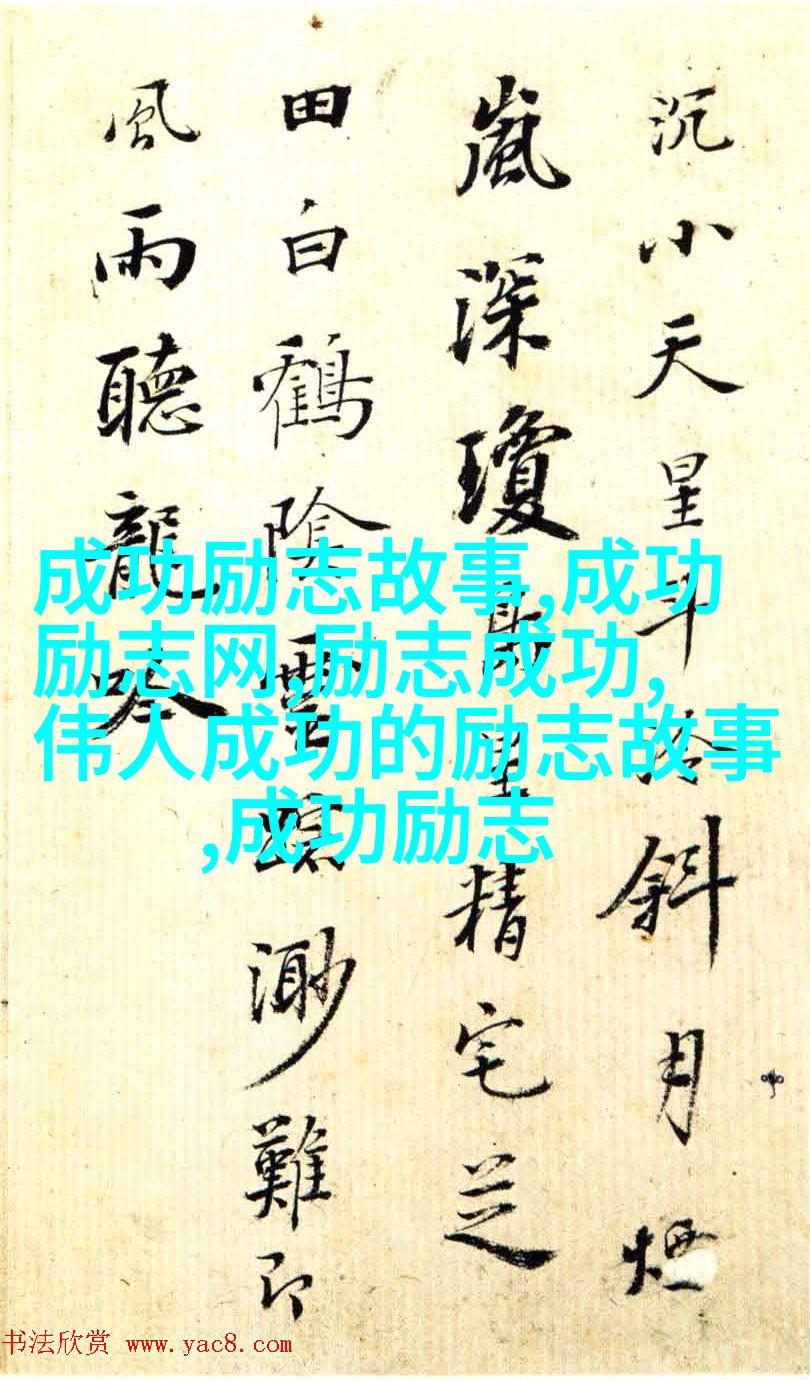 沉小天星斗冷斜月煙
嵐深瓊精宅芝
田白鶴陰雲渺難即
風雨聽龍吟
成功励志故事,成功
励志网,励志成功,
伟人成功的励志故事
,成功励志
书法欣赏 www.yac8.com